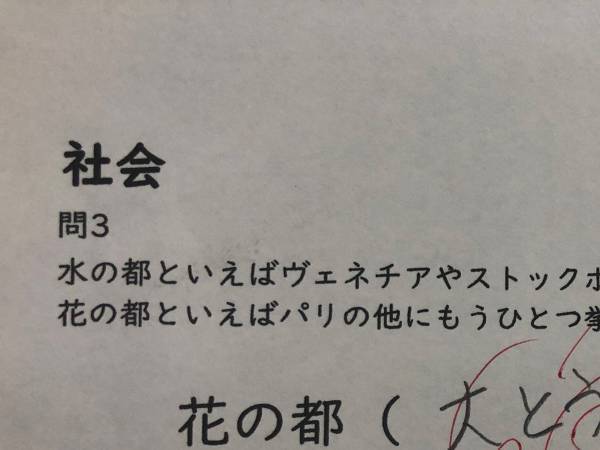 社会
問3
水の都といえばヴェネチアやストックホ
花の都といえばパリの他にもうひとつ挙
花の都（大とう